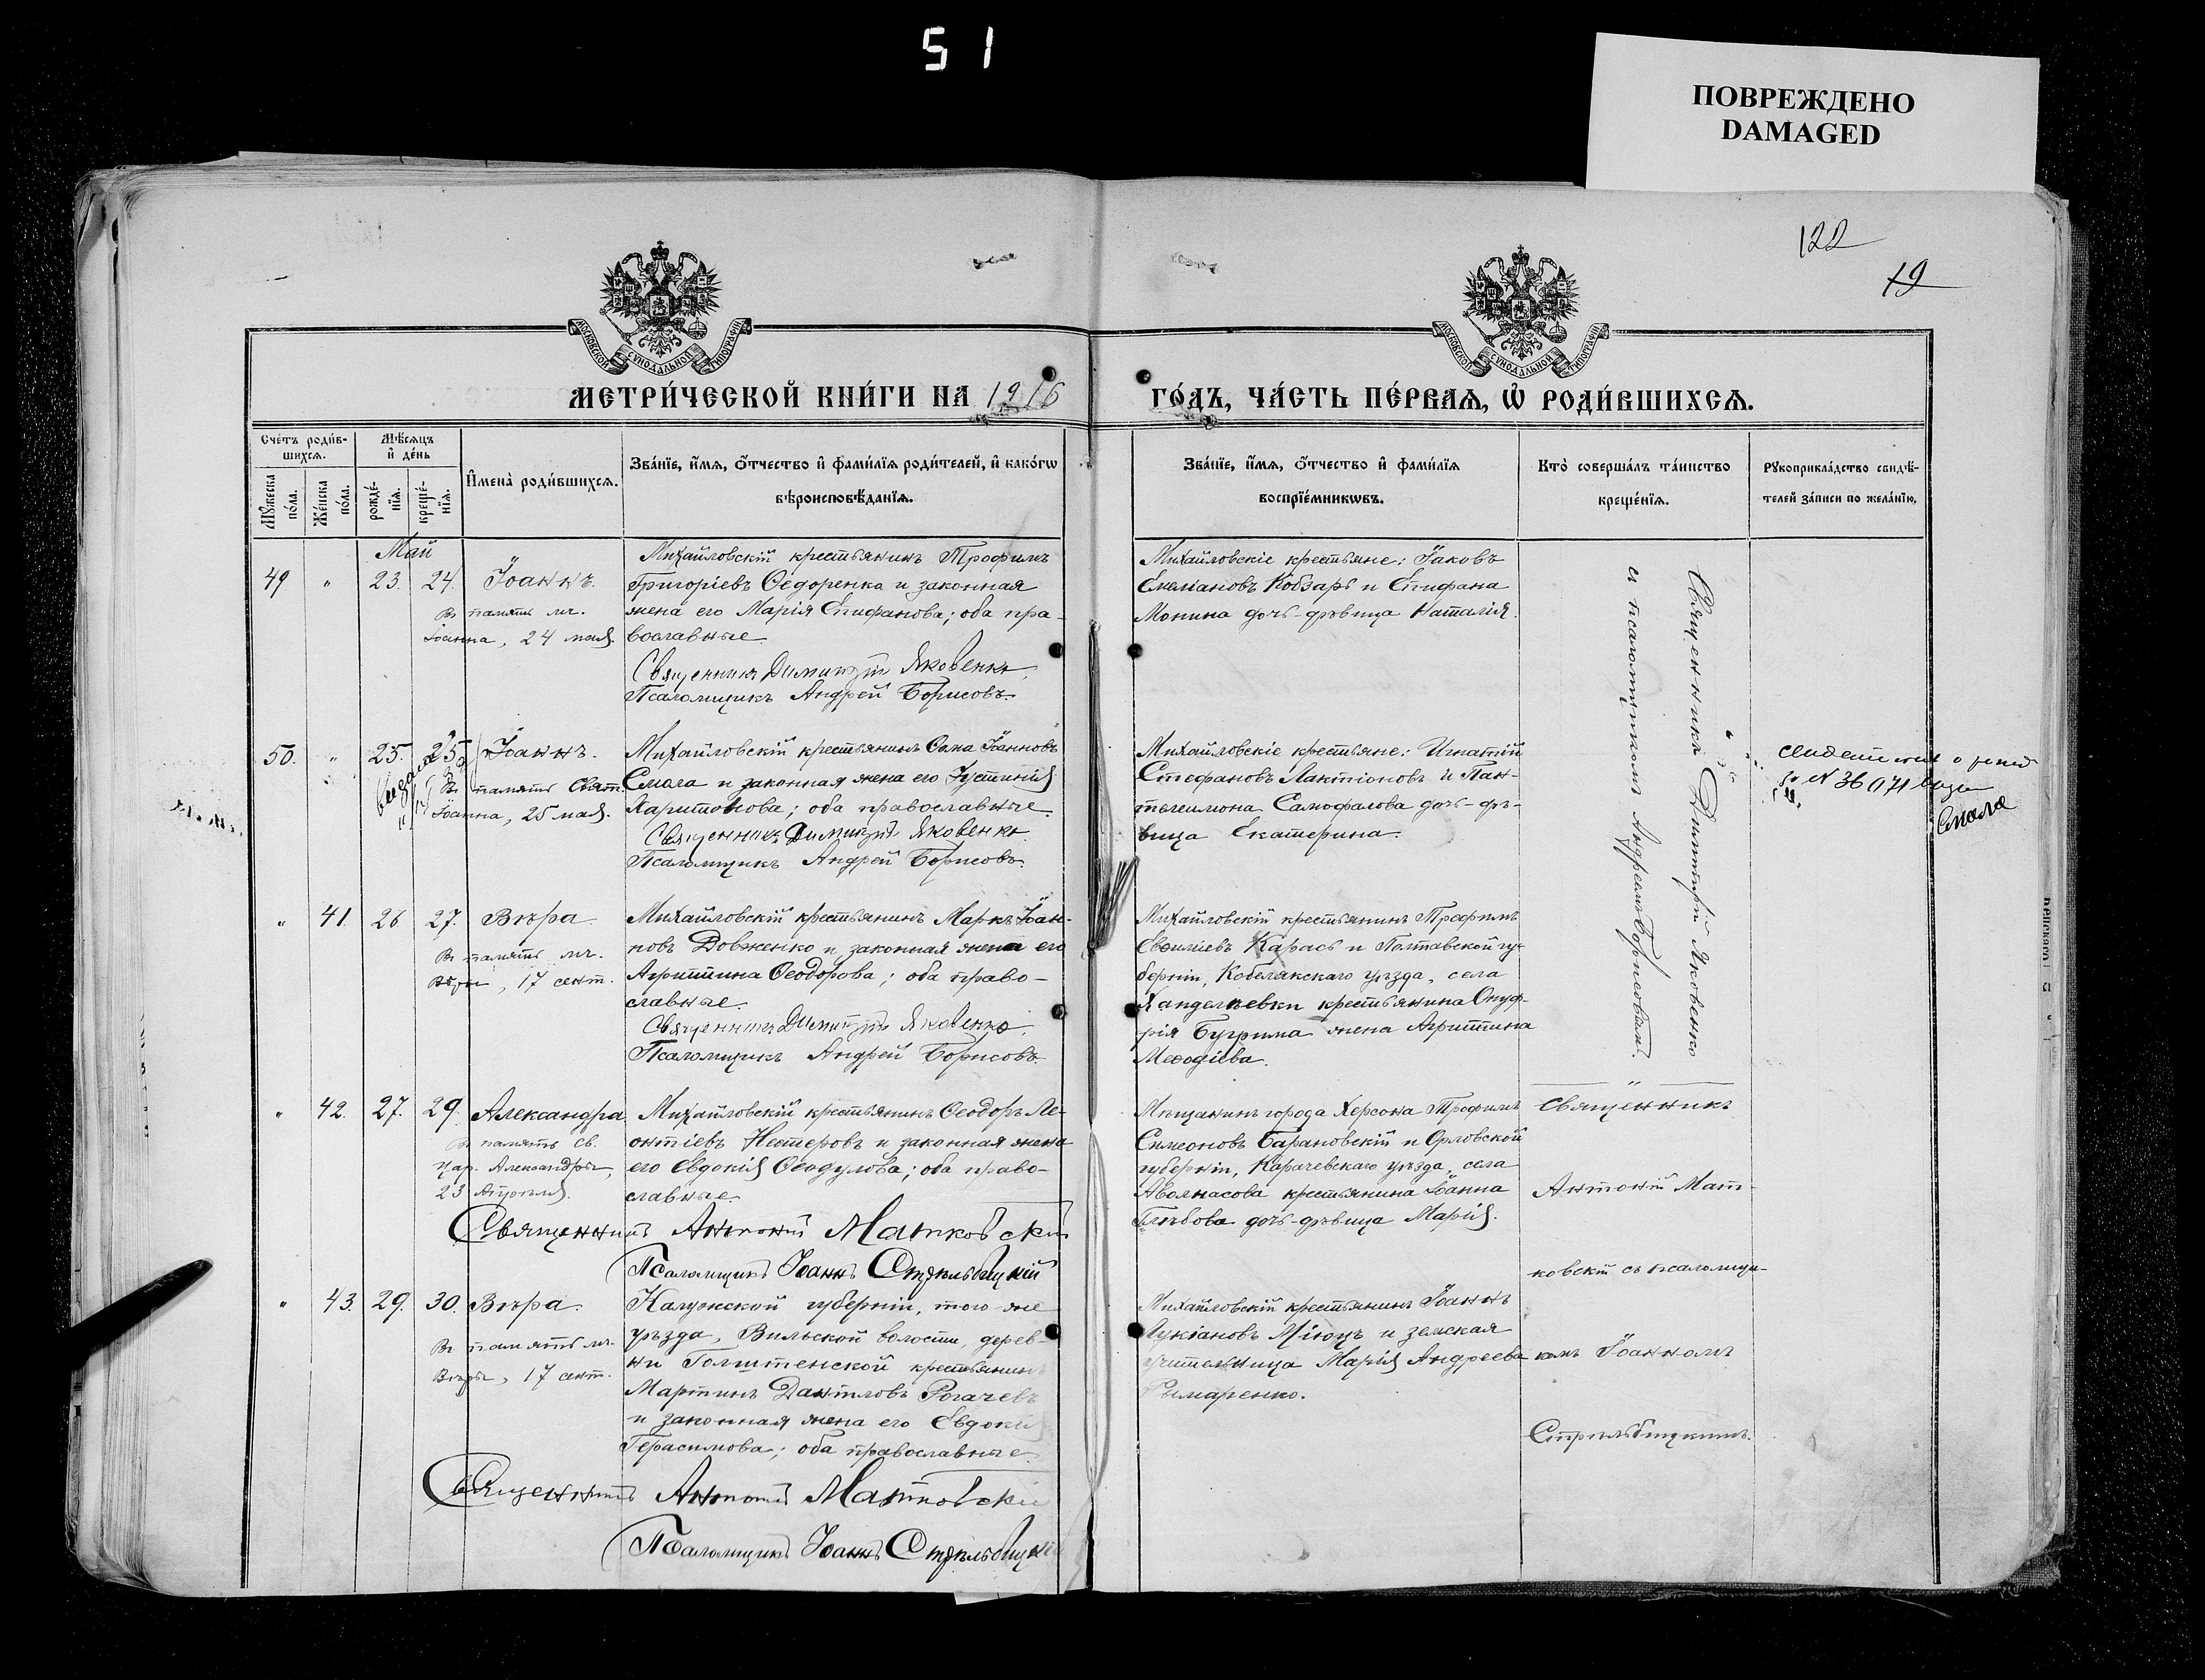 51
ПОВРЕЖДЕНО
DAMAGED
122
19
МОСКОВСКОЙ СѴНОДАЛЬНОЙ ТИПОГРАФІИ
МОСКОВСКОЙ СѴНОДАЛЬНОЙ ТИПОГРАФІИ
МЕТРИ́ЧЕСКОЙ КНИ́ГИ НА 1916
ГО́ДЪ, ЧА́СТЬ ПЕ́РВАѦ, Ѽ РОДИ́ВШИХСѦ.
Сче́тъ роди́в-
шихсѧ.
Мꙋ́жеска
по́ла.
Же́нска
по́ла.
Мѣ́сѧцъ
и҆ де́нь
рожде́-
нїѧ.
креще́-
нїѧ.
И҆мена̀ роди́вшихсѧ.
Зва́нїе, и҆́мѧ, ѻ҆́тчество и҆ фами́лїѧ роди́телей, и҆ како́гѡ
вѣроисповѣ́данїѧ.
Зва́нїе, и҆́мѧ, ѻ҆́тчество и҆ фами́лїѧ
воспрїе́мникѡвъ.
Кто̀ соверша́лъ та́инство
креще́нїѧ.
Рꙋкоприкла́дство свидѣ́-
телей за́писи по жела́нїю.
Май
49 " 23. 24. Іоаннъ.
Въ память мч.
Іоанна, 24 мая.
Михайловскій крестьянинъ Трофимъ
Григоріевъ Ѳедоренко и законная
жена его Марія Епифанова; оба пра-
вославные.
Священникъ Димитрій Яковенко.
Псаломщикъ Андрей Борисовъ.
Михайловскіе крестьяне: Іаковъ
Емеліановъ Кобзарь и Епифана
Монина дочь-дѣвица Наталія.
Священникъ Димитрій Яковенко
съ псаломщикомъ Андреемъ Борисовымъ.
50. " 25. 25. Іоаннъ.
Въ память Свят.
Іоанна, 25 мая.
Михайловскій крестьянинъ Ѳома Іоанновъ
Смола и законная жена его Іустинія
Харитонова; оба православные.
Священникъ Димитрій Яковенко.
Псаломщикъ Андрей Борисовъ.
Михайловскіе крестьяне: Игнатій
Стефановъ Лактіоновъ и Пан-
телеимона Самофалова дочь-дѣ-
вица Екатерина.
№ 36071
Смола
" 41. 26 27. Вѣра.
Въ память мч.
Вѣры, 17 сент.
Михайловскій крестьянинъ Маркъ Іоан-
новъ Довженко и законная жена его
Агриппина Ѳеодорова; оба право-
славные.
Священникъ Димитрій Яковенко.
Псаломщикъ Андрей Борисовъ.
Михайловскій крестьянинъ Трофимъ
Карась и Полтавской гу-
берніи, Кобелякскаго уѣзда, села
Ханделѣевки крестьянина Онуф-
рія Бугрима жена Агриппина
Меѳодіева.
" 42. 27. 29. Александра
Въ память св.
цар. Александры,
23 Апрѣля.
Михайловскій крестьянинъ Ѳеодоръ Ле-
онтіевъ Нестеровъ и законная жена
его Евдокія Ѳеодулова; оба право-
славные.
Священникъ Антоній Матковскій
Псаломщикъ Іоаннъ Стрѣльбицкій
Мѣщанинъ города Херсона Трофимъ
Симеоновъ Барановскій и Орловской
губерніи, Карачевскаго уѣзда, села
крестьянина Іоанна
Глѣбова дочь-дѣвица Марія.
Священникъ
Антоній Мат-
ковскій съ псаломщи-
комъ Іоанномъ
Стрѣльбицкимъ.
" 43. 29. 30. Вѣра.
Въ память мч.
Вѣры, 17 сент.
Калужской губерніи, того-же
уѣзда, Вильской волости, дерев-
ни крестьянинъ
Мартинъ Даніиловъ Рогачевъ
и законная жена его Евдокія
Герасимова; оба православные.
Священникъ Антоній Матковскій
Псаломщикъ Іоаннъ Стрѣльбицкій
Михайловскій крестьянинъ Іоаннъ
Лукіановъ Міюцъ и земская
учительница Марія Андреева
Рымаренко.